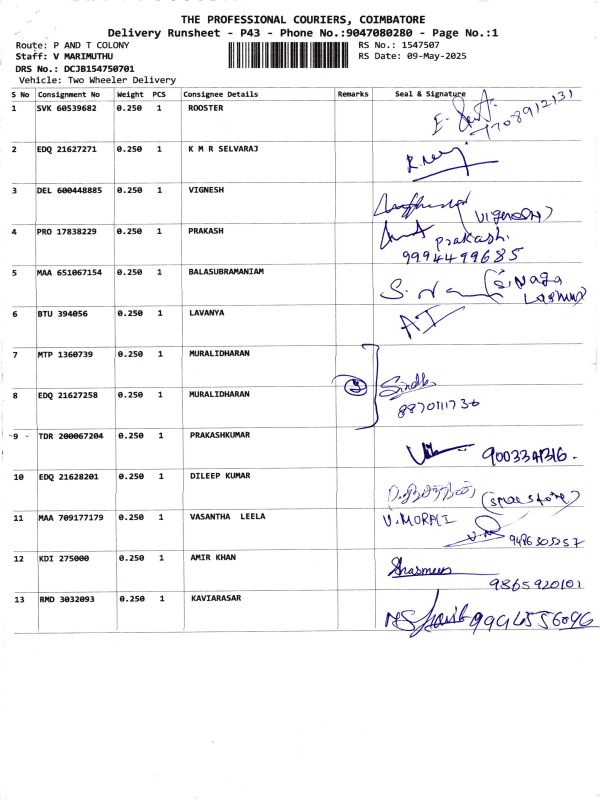 THE PROFESSIONAL COURIERS, COIMBATORE
Delivery Runsheet - P43 - Phone No.:9047080280 - Page No.:1
Route: P AND T COLONY
Staff: V MARIMUTHU
DRS No.: DCJB154750701
Vehicle: Two Wheeler Delivery
RS No.: 1547507
RS Date: 09-May-2025
S No Consignment No Weight PCS Consignee Details Remarks Seal & Signature
1 SVK 60539682 0.250 1 ROOSTER
7708912131
2 EDQ 21627271 0.250 1 K M R SELVARAJ
3 DEL 600448885 0.250 1 VIGNESH
4 PRO 17838229 0.250 1 PRAKASH Prakash.
9994499685
5 MAA 651067154 0.250 1 BALASUBRAMANIAM
S. Naga
6 BTU 394056 0.250 1 LAVANYA
7 MTP 1360739 0.250 1 MURALIDHARAN
8 EDQ 21627258 0.250 1 MURALIDHARAN
8870111736
9 TDR 200067204 0.250 1 PRAKASHKUMAR
10 EDQ 21628201 0.250 1 DILEEP KUMAR
11 MAA 709177179 0.250 1 VASANTHA LEELA
9486305257
12 KDI 275000 0.250 1 AMIR KHAN
9865920101
13 RMD 3032093 0.250 1 KAVIARASAR